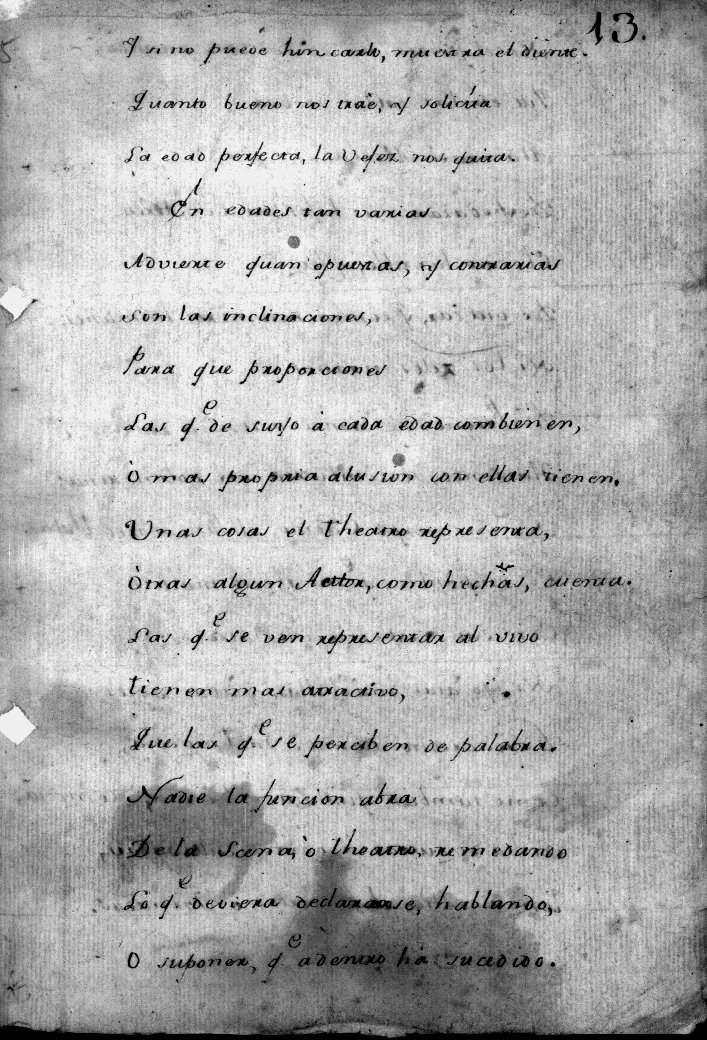 13.
Y si no puede hincarlo, muestra el diente.
Quanto bueno nos traè, y solicita
La edad perfecta, la Vejez nos quita.
En edades tan varias
Advierte quan opuestas, y contrarias
son las inclinaciones,
Para que proporciones
Las q.e de suyo à cada edad combienen,
ò mas propria alusion con ellas tienen.
Unas cosas el theatro representa,
òtras algun Acttor, como hechas, cuenta.
Las q.e se ven representar al vivo
tienen mas atractivo,
Que las q.e se perciben de palabra.
Nadie la funcion abra
De la Scena, ò theatro, remedando
Lo q.e deviera declararse, hablando,
O suponer, q.e àdentro hà sucedido.